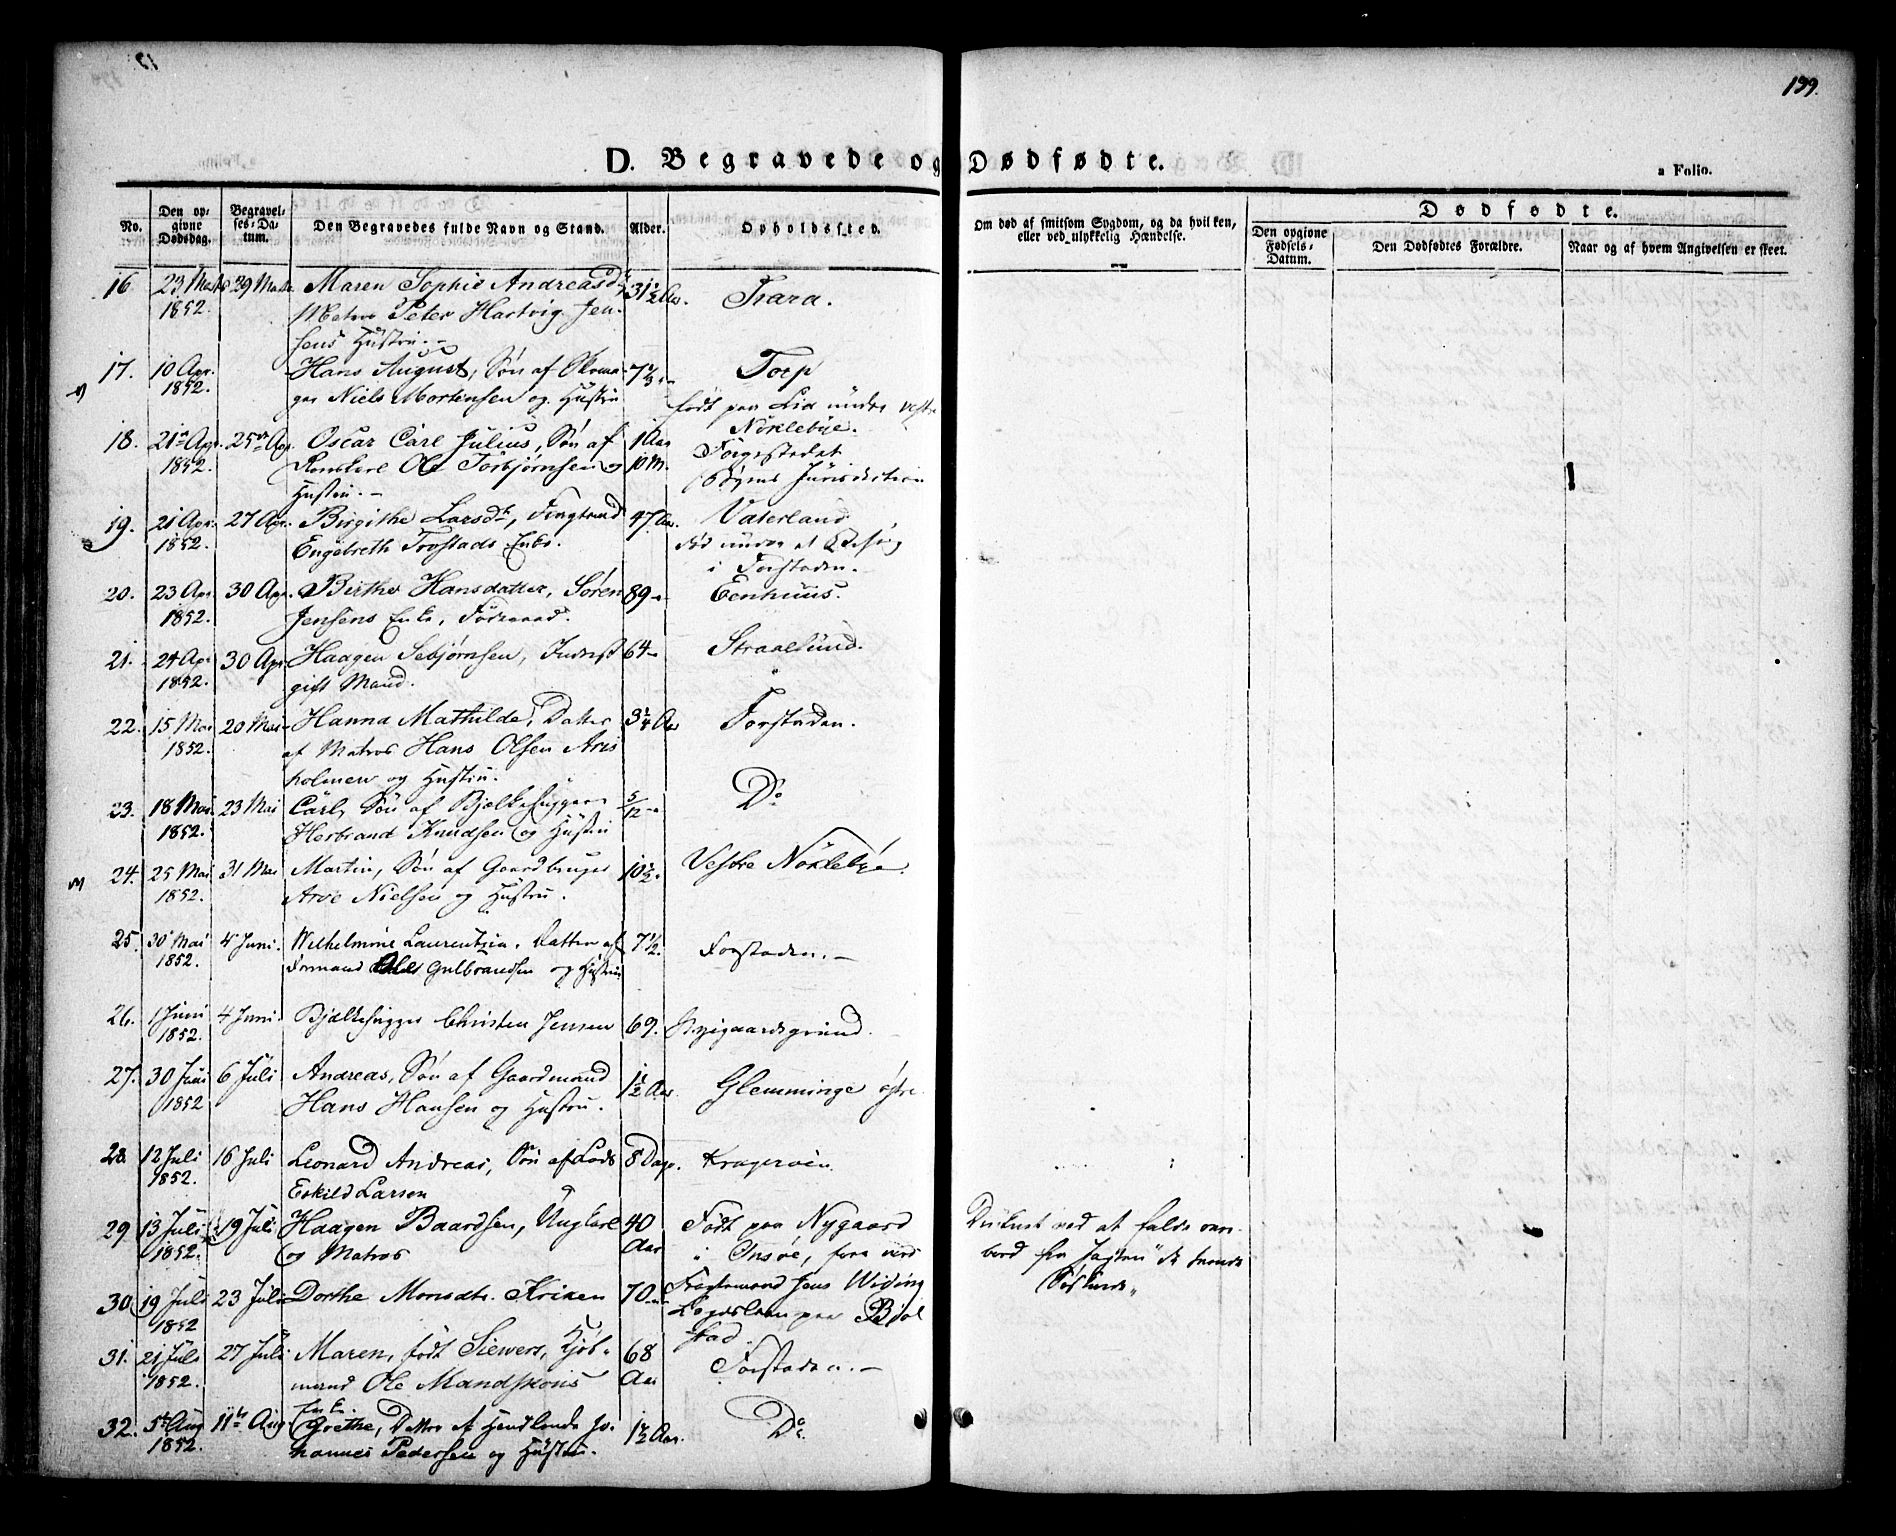 199.
D. Begravede og Dødfødte.
a Folio.
No.
Den opgivne Dødsdag.
Begravelses-Datum.
Den Begravedes fulde Navn og Stand.
Alder.
Opholdssted.
Om død af smitsom Sygdom, og da hvilken, eller ved ulykkelig Hændelse.
Dødfødte.
Den opgivne Fødsels-Datum.
Den Dødfødtes Forældre.
Naar og af hvem Angivelsen er skeet.
16 23 Marts 29 Marts Maren Sophie Andreasd. 31½ Aar. Trara.
1852. Matros Peter Hartvig Jen-
sens Hustru.
17. 10 Apr. Hans August, Søn af Skoma- Torp
1852. ger Niels Mortensen og Hustru født paa Lia under vestre
Nøklebye.
18. 21 Apr. 25 Apr. Oscar Carl Julius, Søn af 1 Aar
1852. Ole Torbjørnsen og 10 M. Byens Jurisdiction
Hustru.
19. 21 Apr. 27 Apr. Birgithe Larsdt, 47 Aar. Vaterland
1852. Engebreth Trostads Enke. død under et Besøg
i Forstaden.
20. 23 Apr. 30 Apr. Birthe Hansdatter, Søren 89 Eenhuus.
1852. Jensens Enke, Føderaad.
21. 24 Apr 30 Apr Haagen Sebjørnsen, 64 Straalsund.
1852. gift Mand.
22. 15 Mai 20 Mai Hanna Mathilde, Datter 3¼ Aar Forstaden.
1852. af Matros Hans Olsen Aris
holmen og Hustru.
23. 18 Mai 23 Mai Carl, Søn af Bjelkehugger 5/12 Do
1852. Herbrand Knudsen og Hustru
24. 25 Mai 31 Mai Martin, Søn af Gaardbruger 10½ Vestre Nøklebye.
1852. Arve Nielsen og Hustru.
25. 30 Mai 4 Juni. Wilhelmine Laurentzia. Datter af 7½. Forstaden.
1852. Formand Ole Gulbrandsen og Hustru
26. 1 Juni 4 Juni. Bjælkehugger Christen Jensen 69.
1852.
27. 30 Juni 6 Juli Andreas, Søn af Gaardmand 1½ Aar. Glemminge østre
1852 Hans Hansen og Hustru.
28. 12 Juli 16 Juli Leonard Andreas, Søn af Lods 8 Dage. Kragerøen
1852. Eskild Larsen
29 13 Juli 19 Juli Haagen Baardsen, Ungkarl 40 Født paa Nygaard Druknet ved at falde over-
1852. og Matros Aar i Onsøe, bord fra Jagten
30 19 Juli 23 Juli Dorthe Monsdtr. Kriken 70 Fragtemand Jens Widing
1852 paa Bjøl
stad.
31. 21 Juli 27 Juli Maren, født Siewers, Kjøb- 68 Forstaden.
1852. mand Ole Mandskous Aar
Enke.
32. 5te Aug 11te Aug. Grethe, Datter af Johannes 1½ Aar. Do.
1852. Pedersen og Hustru.